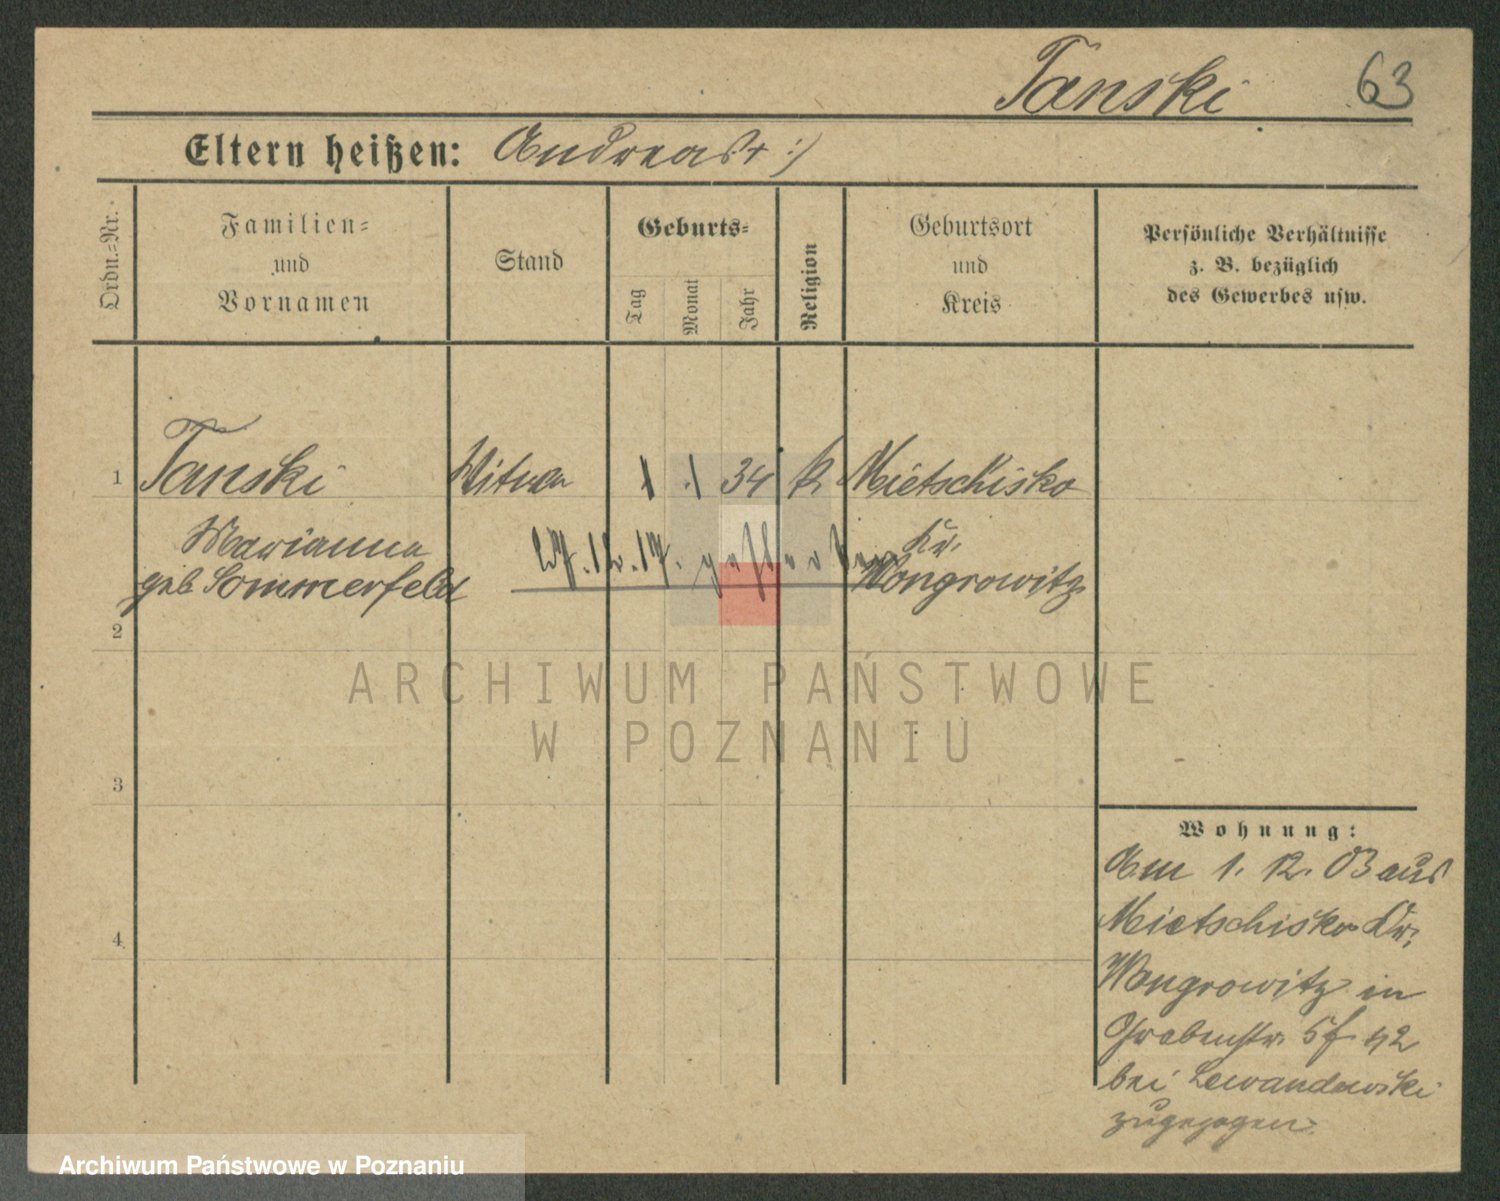 Tanski 63
Eltern heißen: Andreas + :)
Ordn.=Nr.
Familien=
und
Vornamen
Stand
Geburts=
Tag
Monat
Jahr
Religion
Geburtsort
und
Kreis
Persönliche Verhältnisse
z. B. bezüglich
des Gewerbes usw.
1 Tanski Witwe 1 1 34 k Mietschisko
Marianna Kr.
geb Sommerfeld Wongrowitz
27.12.17. gestorben
2
3
4
ARCHIWUM PAŃSTWOWE
W POZNANIU
Wohnung:
Am 1. 12. 03 aus
Mietschisko Kr.
Wongrowitz in
Grabenstr. 42
bei Lewandowski
zugezogen.
Archiwum Państwowe w Poznaniu